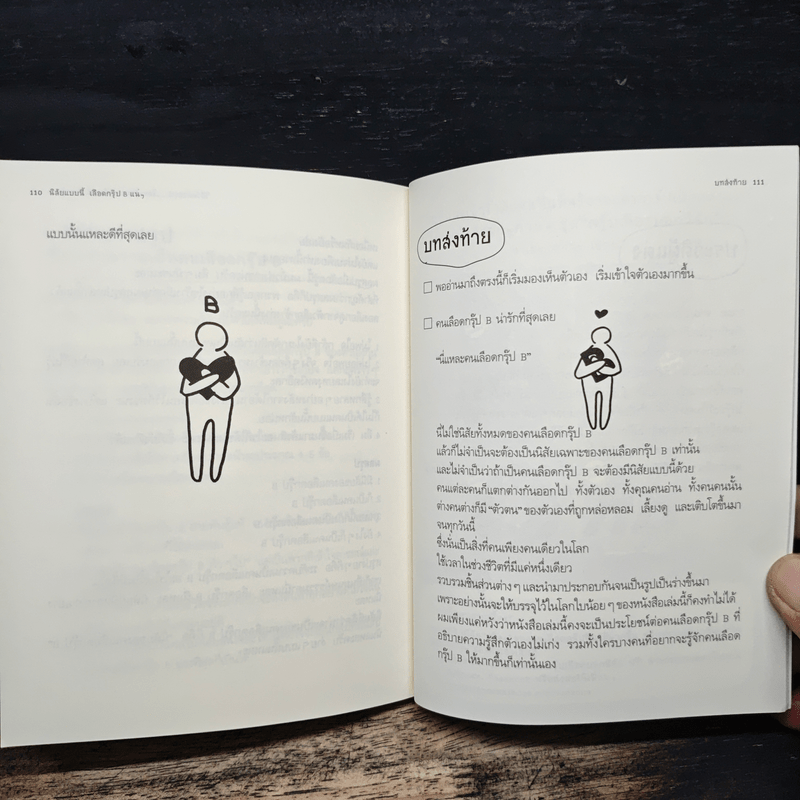 110 นิสัยแบบนี้ เลือดกรุ๊ป B แน่ๆ
แบบนั้นแหละดีที่สุดเลย
B
บทส่งท้าย 111
บทส่งท้าย
พออ่านมาถึงตรงนี้ก็เริ่มมองเห็นตัวเอง เริ่มเข้าใจตัวเองมากขึ้น
คนเลือดกรุ๊ป B น่ารักที่สุดเลย
"นี่แหละคนเลือดกรุ๊ป B"
นี่ไม่ใช่นิสัยทั้งหมดของคนเลือดกรุ๊ป B
แล้วก็ไม่จำเป็นจะต้องเป็นนิสัยเฉพาะของคนเลือดกรุ๊ป B เท่านั้น
และไม่จำเป็นว่าถ้าเป็นคนเลือดกรุ๊ป B จะต้องมีนิสัยแบบนี้ด้วย
คนแต่ละคนก็แตกต่างกันออกไป ทั้งตัวเอง ทั้งคุณคนอ่าน ทั้งคนคนนั้น
ต่างคนต่างก็มี "ตัวตน" ของตัวเองที่ถูกหล่อหลอม เลี้ยงดู และเติบโตขึ้นมา
จนทุกวันนี้
ซึ่งนั่นเป็นสิ่งที่คนเพียงคนเดียวในโลก
ใช้เวลาในช่วงชีวิตที่มีแค่หนึ่งเดียว
รวบรวมชิ้นส่วนต่าง ๆ และนำมาประกอบกันจนเป็นรูปเป็นร่างขึ้นมา
เพราะอย่างนั้นจะให้บรรจุไว้ในโลกใบน้อย ๆ ของหนังสือเล่มนี้ก็คงทำไม่ได้
ผมเพียงแค่หวังว่าหนังสือเล่มนี้คงจะเป็นประโยชน์ต่อคนเลือดกรุ๊ป B ที่
อธิบายความรู้สึกตัวเองไม่เก่ง รวมทั้งใครบางคนที่อยากจะรู้จักคนเลือด
กรุ๊ป B ให้มากขึ้นก็เท่านั้นเอง